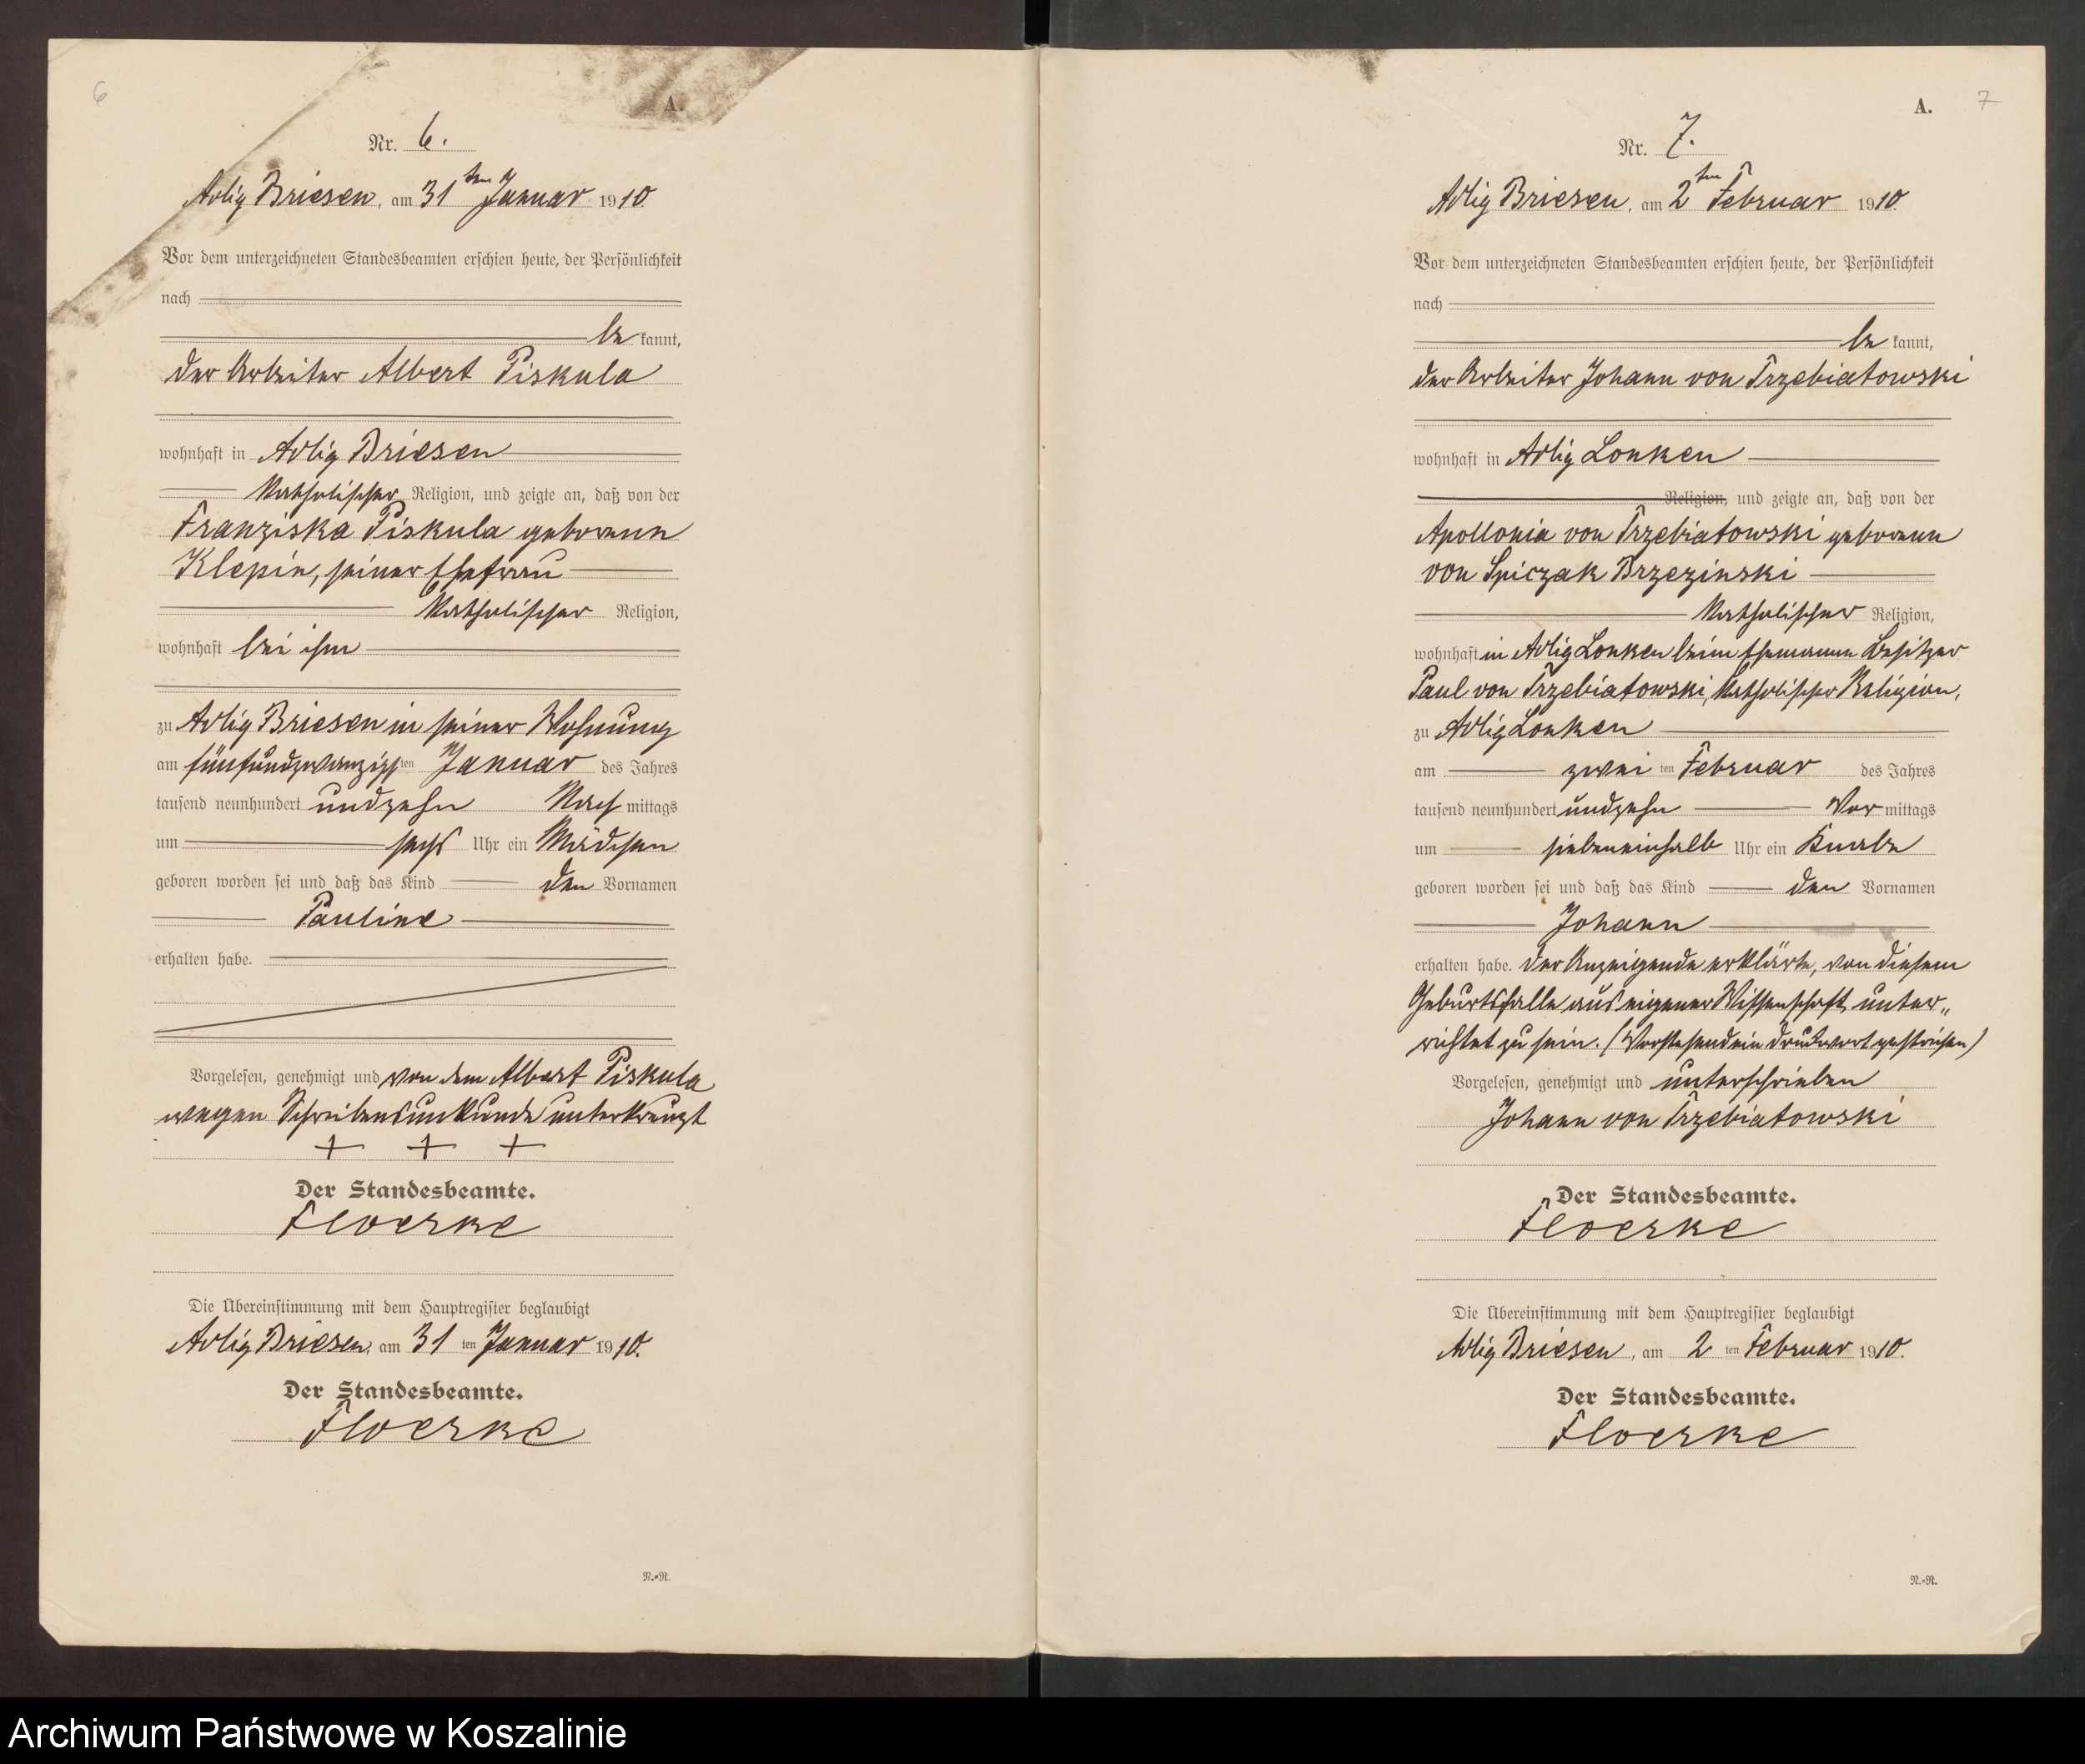 6
A.
Nr. 6.
Adlig Briesen, am 31ten Januar 1910.
Vor dem unterzeichneten Standesbeamten erschien heute, der Persönlichkeit
nach
be kannt,
der Arbeiter Albert Piskula
wohnhaft in Adlig Briesen
katholischer Religion, und zeigte an, daß von der
Franziska Piskula geborenen
Klepin, seiner Ehefrau
katholischer Religion,
wohnhaft bei ihm
zu Adlig Briesen in seiner Wohnung
am fünfundzwanzigsten Januar des Jahres
tausend neunhundert undzehn Nach mittags
um sechs Uhr ein Mädchen
geboren worden sei und daß das Kind den Vornamen
Pauline
erhalten habe.
Vorgelesen, genehmigt und von dem Albert Piskula
wegen Schreibensunkunde unterkreuzt
+ + +
Der Standesbeamte.
Floerke
Die Übereinstimmung mit dem Hauptregister beglaubigt
Adlig Briesen, am 31 ten Januar 1910.
Der Standesbeamte.
Floerke
N.=R.
A. 7
Nr. 7.
Adlig Briesen, am 2ten Februar 1910.
Vor dem unterzeichneten Standesbeamten erschien heute, der Persönlichkeit
nach
be kannt,
der Arbeiter Johann von Trzebiatowski
wohnhaft in Adlig Lonken
Religion, und zeigte an, daß von der
Apollonia von Trzebiatowski geborenen
von Spiczak Brzezinski
katholischer Religion,
wohnhaft in Adlig Lonken beim Ehemanne Besitzer
Paul von Trzebiatowski, katholischer Religion,
zu Adlig Lonken
am zwei ten Februar des Jahres
tausend neunhundert undzehn Vor mittags
um siebeneinhalb Uhr ein Knabe
geboren worden sei und daß das Kind den Vornamen
Johann
erhalten habe. Der Anzeigende erklärte, von diesem
Geburtsfalle aus eigener Wissenschaft unter„
richtet zu sein. (Vorstehend ein Druckwort gestrichen)
Vorgelesen, genehmigt und unterschrieben
Johann von Trzebiatowski
Der Standesbeamte.
Floerke
Die Übereinstimmung mit dem Hauptregister beglaubigt
Adlig Briesen, am 2 ten Februar 1910.
Der Standesbeamte.
Floerke
N.=R.
Archiwum Państwowe w Koszalinie